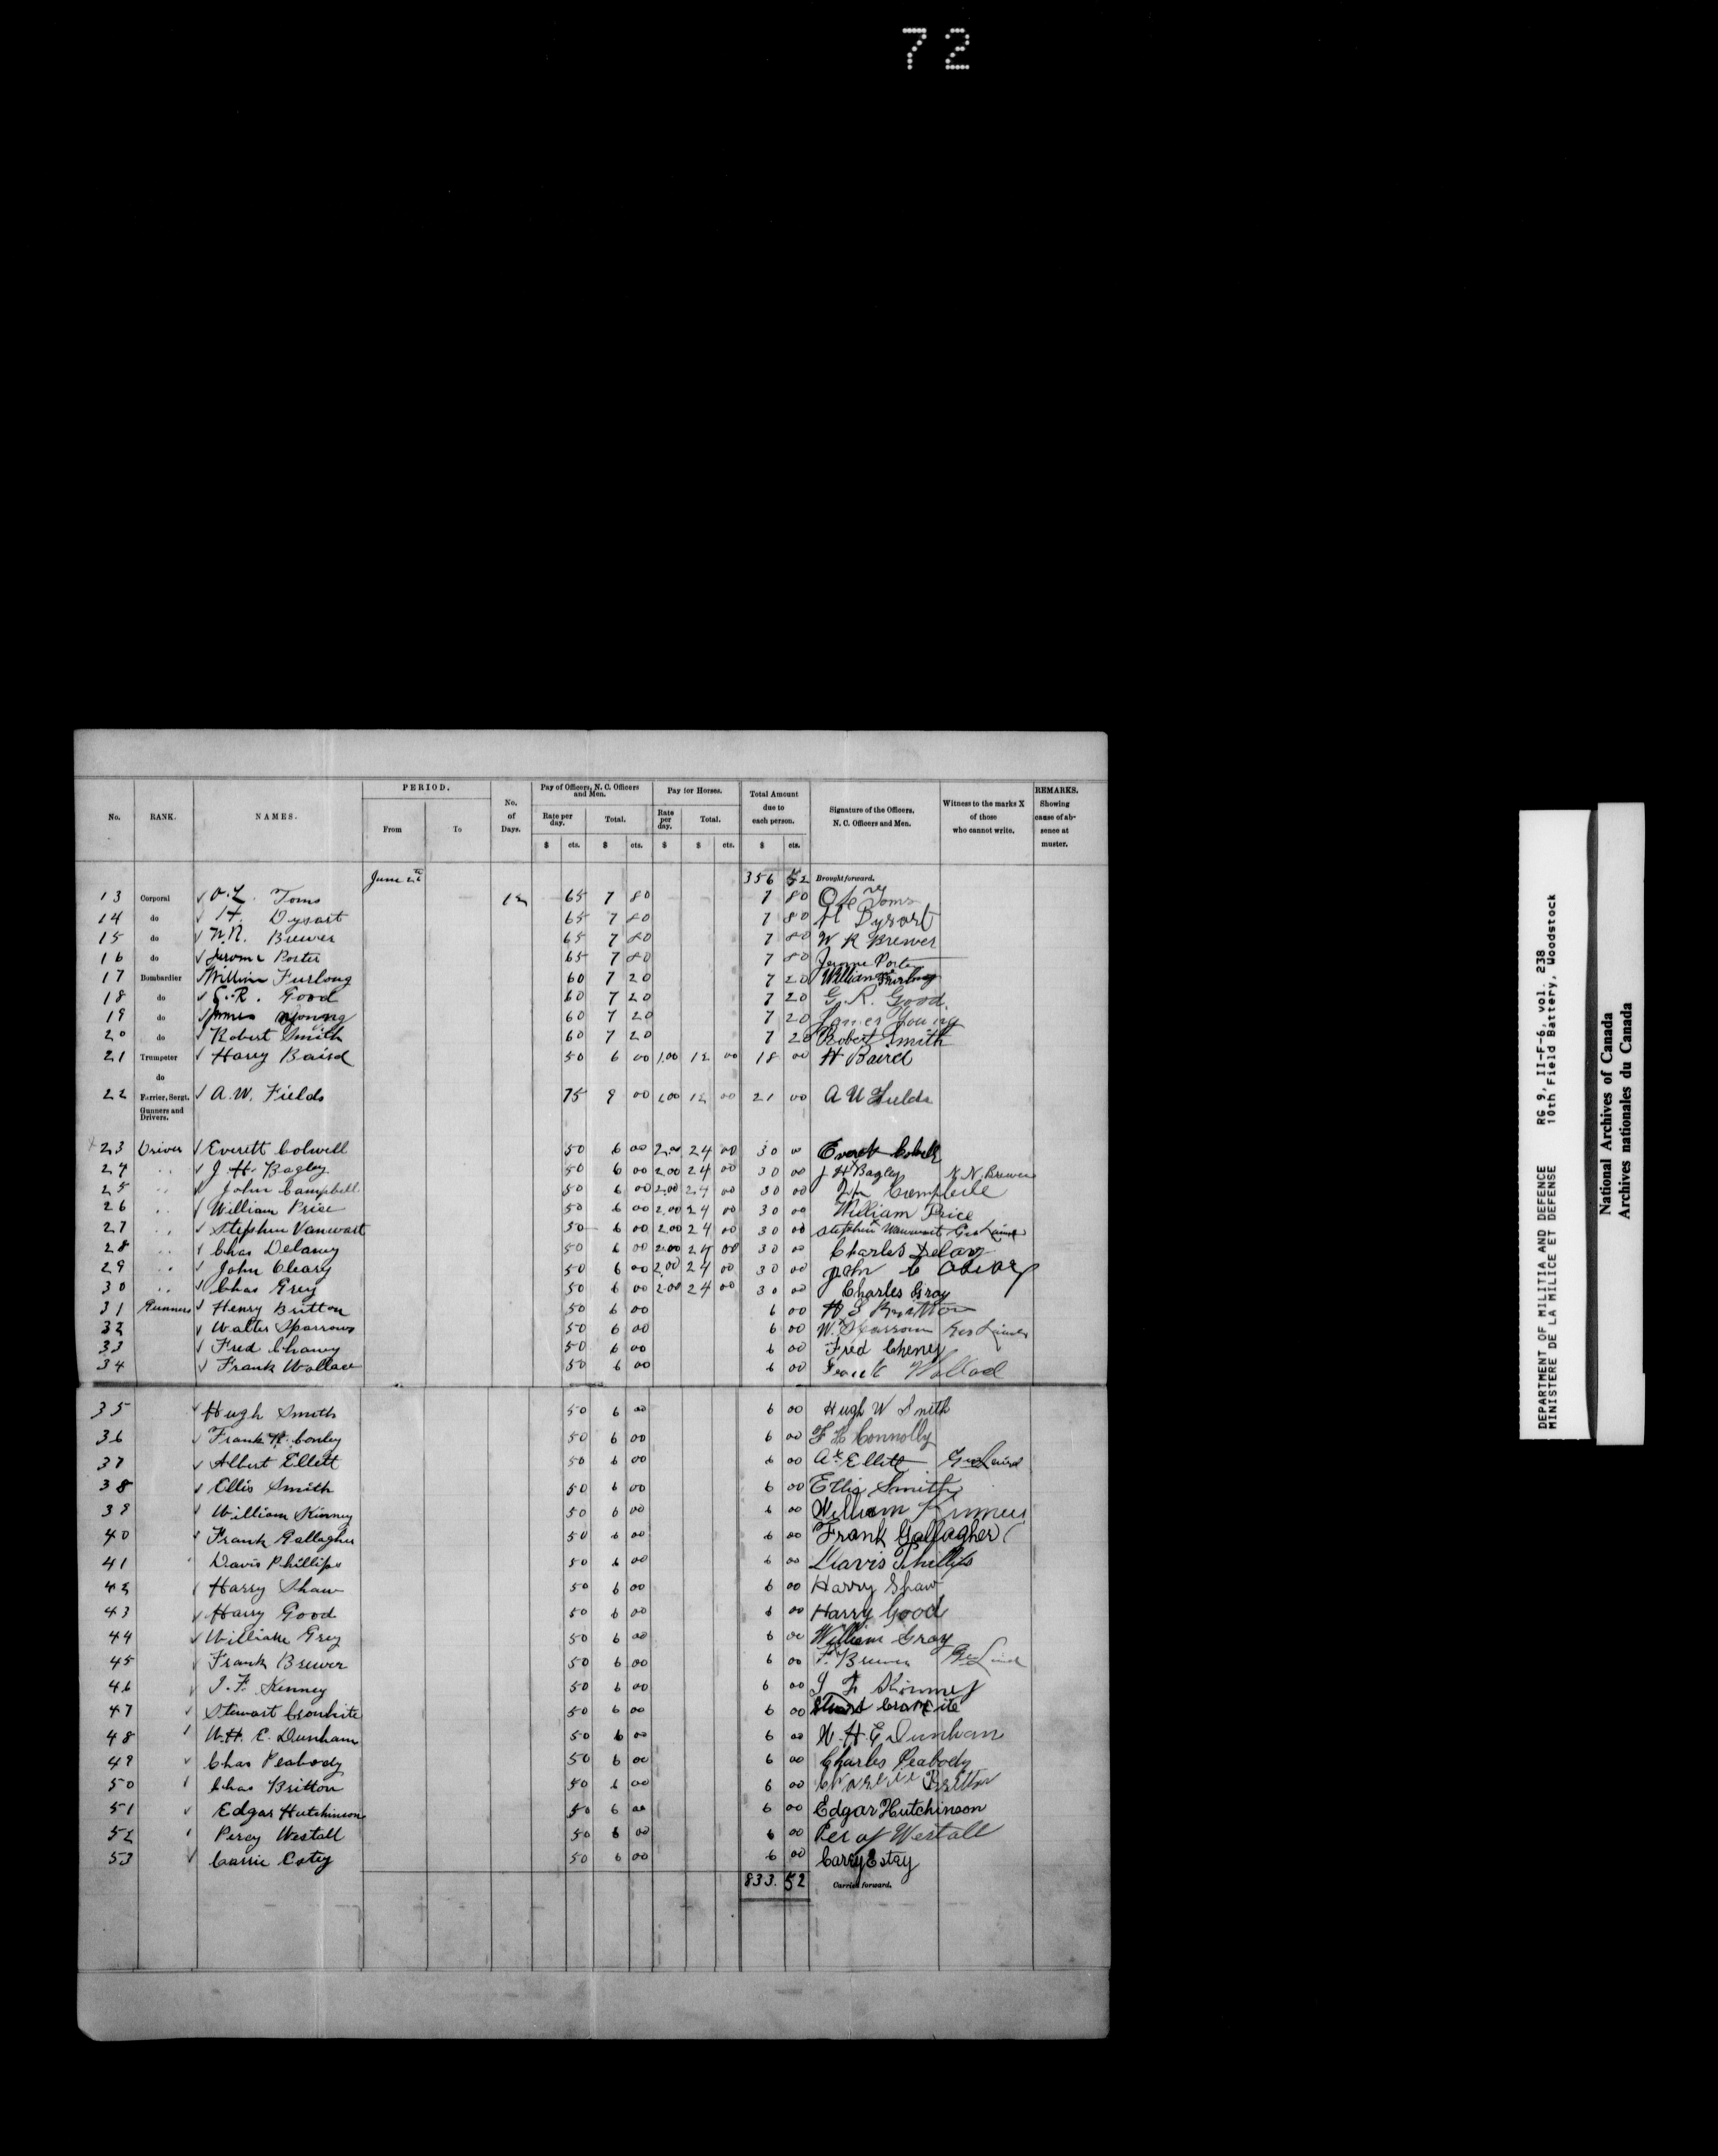 72
PERIOD. Pay of Officers, N. C. Officers and Men. Pay for Horses. Total Amount due to each person. REMARKS.
No. RANK. NAMES. From To No. of Days. Rate per day. Total. Rate per day. Total. Signature of the Officers, N. C. Officers and Men. Witness to the marks X of those who cannot write. Showing cause of absence at muster.
$ cts. $ cts. $ $ cts. $ cts.
June 356 52 Brought forward.
13 Corporal Toms 12 65 7 80 7 80 Toms
14 do H. Dysart 65 7 80 7 80 H Dysart
15 do Brewer 65 7 80 7 80 W R Brewer
16 do Jerome Porter 65 7 80 7 80 Jerome Porter
17 Bombardier William Furlong 60 7 20 7 20 William Furlong
18 do G. R. Good 60 7 20 7 20 G. R. Good
19 do James Young 60 7 20 7 20 James Young
20 do Robert Smith 60 7 20 7 20 Robert Smith
21 Trumpeter Harry Baird 50 6 00 1.00 12 00 18 00 H Baird
do
22 Farrier, Sergt. A. W. Fields 75 9 00 1.00 12 00 21 00 A W Fields
Gunners and Drivers.
23 Driver Everett Colwell 50 6 00 2.00 24 00 30 00 Everett Colwell
24 " J. H. Bagley 50 6 00 2.00 24 00 30 00 J H Bagley Brewer
25 " John Campbell 50 6 00 2.00 24 00 30 00 John Campbell
26 " William Price 50 6 00 2.00 24 00 30 00 William Price
27 " Stephen Vanwart 50 6 00 2.00 24 00 30 00 Stephen X Vanwart Geo Laird
28 " Chas Delaney 50 6 00 2.00 24 00 30 00 Charles
29 " John Cleary 50 6 00 2.00 24 00 30 00 John C
30 " Chas Grey 50 6 00 2.00 24 00 30 00 Charles Gray
31 Gunners Henry Britton 50 6 00 6 00 Britton
32 Walter Sparrows 50 6 00 6 00 W. X Geo Laird
33 Fred Chaney 50 6 00 6 00 Fred Cheney
34 Frank Wallace 50 6 00 6 00 Frank
35 Hugh Smith 50 6 00 6 00 Hugh W Smith
36 Frank Conley 50 6 00 6 00 Connolly
37 Albert Ellett 50 6 00 6 00 A X Ellett Geo Laird
38 Ellis Smith 50 6 00 6 00 Ellis Smith
39 William Kinney 50 6 00 6 00 William Kinney
40 Frank Gallagher 50 6 00 6 00 Frank Gallagher
41 Davis Phillips 50 6 00 6 00 Davis Phillips
42 Harry Shaw 50 6 00 6 00 Harry Shaw
43 Harry Good 50 6 00 6 00 Harry Good
44 William Grey 50 6 00 6 00 William Gray
45 Frank Brewer 50 6 00 6 00 F. Brewer Geo Laird
46 J. F. Kenney 50 6 00 6 00 J F
47 Stewart Cronkite 50 6 00 6 00
48 W. H. E. Dunham 50 6 00 6 00 W. H. E Dunham
49 Chas Peabody 50 6 00 6 00 Charles Peabody
50 Chas Britton 50 6 00 6 00 Britton
51 Edgar Hutchinson 50 6 00 6 00 Edgar Hutchinson
52 Percy Westall 50 6 00 6 00 Percy Westall
53 Carrie Estey 50 6 00 6 00 Carry Estey
833. 52 Carried forward.
DEPARTMENT OF MILITIA AND DEFENCE RG 9, II-F-6, vol. 238
MINISTERE DE LA MILICE ET DEFENSE 10th Field Battery, Woodstock
National Archives of Canada
Archives nationales du Canada